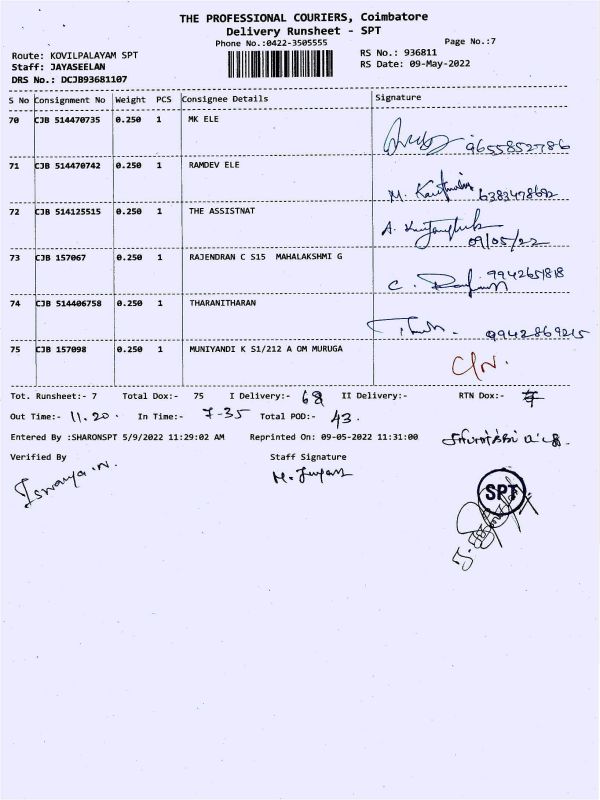 THE PROFESSIONAL COURIERS, Coimbatore
Delivery Runsheet - SPT
Phone No.:0422-3505555
Page No.:7
Route: KOVILPALAYAM SPT
RS No.: 936811
Staff: JAYASEELAN
RS Date: 09-May-2022
DRS No.: DCJB93681107
S No Consignment No Weight PCS Consignee Details Signature
70 CJB 514470735 0.250 1 MK ELE
9655852786
71 CJB 514470742 0.250 1 RAMDEV ELE
M.
72 CJB 514125515 0.250 1 THE ASSISTNAT
A.
09/05/22
73 CJB 157067 0.250 1 RAJENDRAN C S15 MAHALAKSHMI G
9942651818
C.
74 CJB 514406758 0.250 1 THARANITHARAN
9942869215
75 CJB 157098 0.250 1 MUNIYANDI K S1/212 A OM MURUGA
C/N.
Tot. Runsheet:- 7 Total Dox:- 75 I Delivery:- 68 II Delivery:- RTN Dox:- 7
Out Time:- 11.20. In Time:- 7-35 Total POD:- 43.
Entered By :SHARONSPT 5/9/2022 11:29:02 AM Reprinted On: 09-05-2022 11:31:00
Verified By Staff Signature
Iswarya.N.
SPT